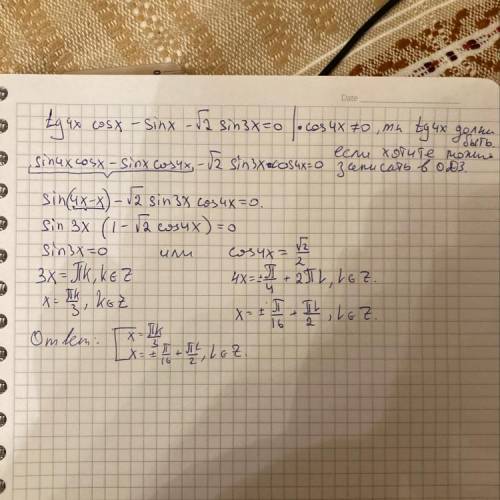 Date
tg4x cosx - sinx - √2 sin3x = 0 | · cos4x ≠ 0, т.к tg4x должен
быть.
sin4x cosx - sinx cos4x, - √2 sin3x · cos4x = 0 если хотите можно
записать в ОДЗ
sin(4x-x) - √2 sin3x cos4x = 0.
sin 3x (1 - √2 cos4x) = 0
sin3x = 0 или cos4x = √2/2
3x = πk, k∈Z 4x = ±π/4 + 2πl, l∈Z.
x = πk/3, k∈Z x = ± π/16 + πl/2, l∈Z.
Ответ: [x = πk/3
x = ± π/16 + πl/2, l∈Z.